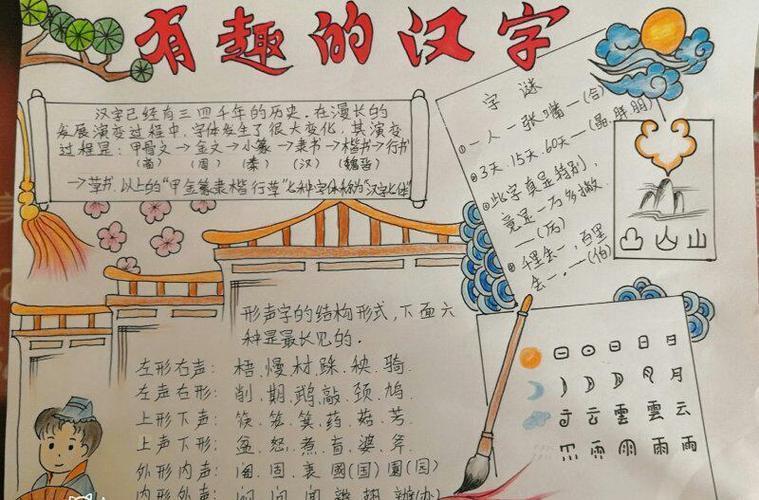 有趣的汉字
汉字已经有三四千年的历史.在漫长的
发展演变过程中,字体发生了很大变化,其演变
过程是:甲骨文→金文→小篆→隶书→楷书→行书
(商) (周) (秦) (汉) (魏晋)
→草书.以上的"甲金篆隶楷行草"七种字体称为"汉字七体"
字谜
一人一张嘴—(合)
3天.15天.60天—(晶.胖.朋)
此字真是特别,
竟是一万多撇.
—(厉)
千里去一,百里
去一.—(伯)
凸 山 山
形声字的结构形式,下面六
种是最长见的.
左形右声: 梧.慢.材.跺.秧.骑.
左声右形: 削.期.鹉.敲.颈.鸠.
上形下声: 筷.竿.箕.药.菇.芳
上声下形: 盆.怒.煮.盲.婆.斧.
外形内声: 阁.固.裹.國(国)園(园)
内形外声: 问.闻.辫.辦(办)
日 日 日
月 月
云 雲 雲 云
雨 雨 雨